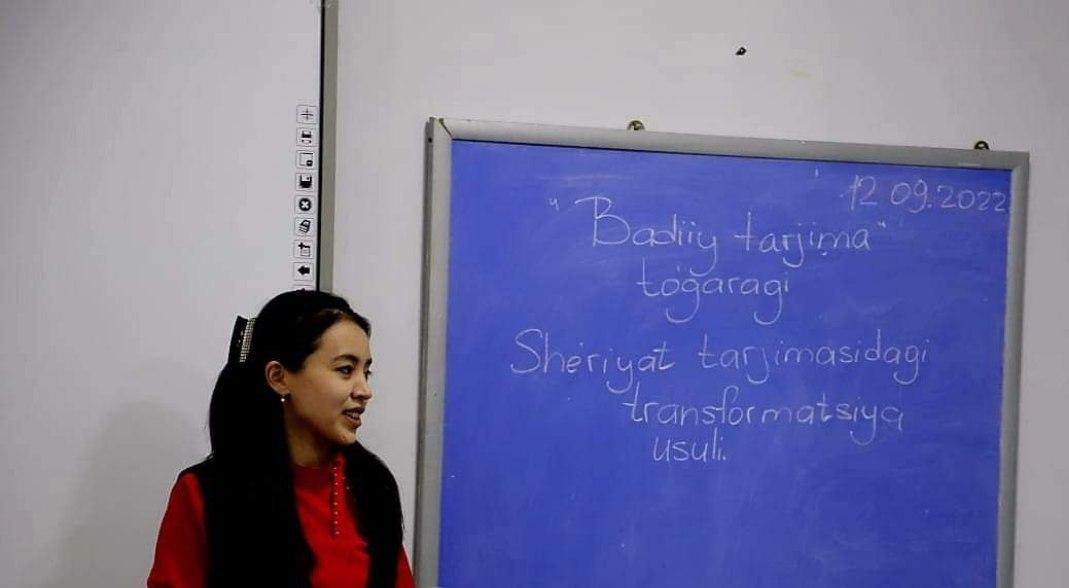 12 09.2022
"Badiiy tarjima"
to'garagi
She'riyat tarjimasidagi
transformatsiya
usuli.